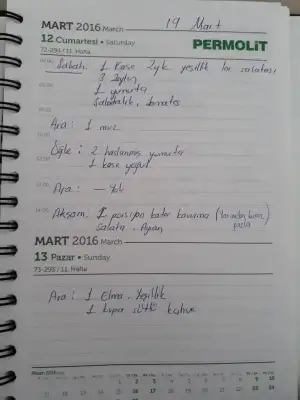 MART 2016 March
19 Mart
12 Cumartesi • Saturday
PERMOLİT
72-294 / 11. Hafta
Sabah: 1 Kase yeşillik ton salatası
3 Zeytin
1 yumurta
Salatalık, domates
Ara: 1 muz
Öğle: 2 haşlanmış yumurta
1 kase yoğurt
Ara: — Yok
Akşam: 1 porsiyon kavurma
Salata, Ayran
MART 2016 March
13 Pazar • Sunday
73-293 / 11. Hafta
Ara: 1 Elma, Yeşillik
1 kupa sütlü kahve